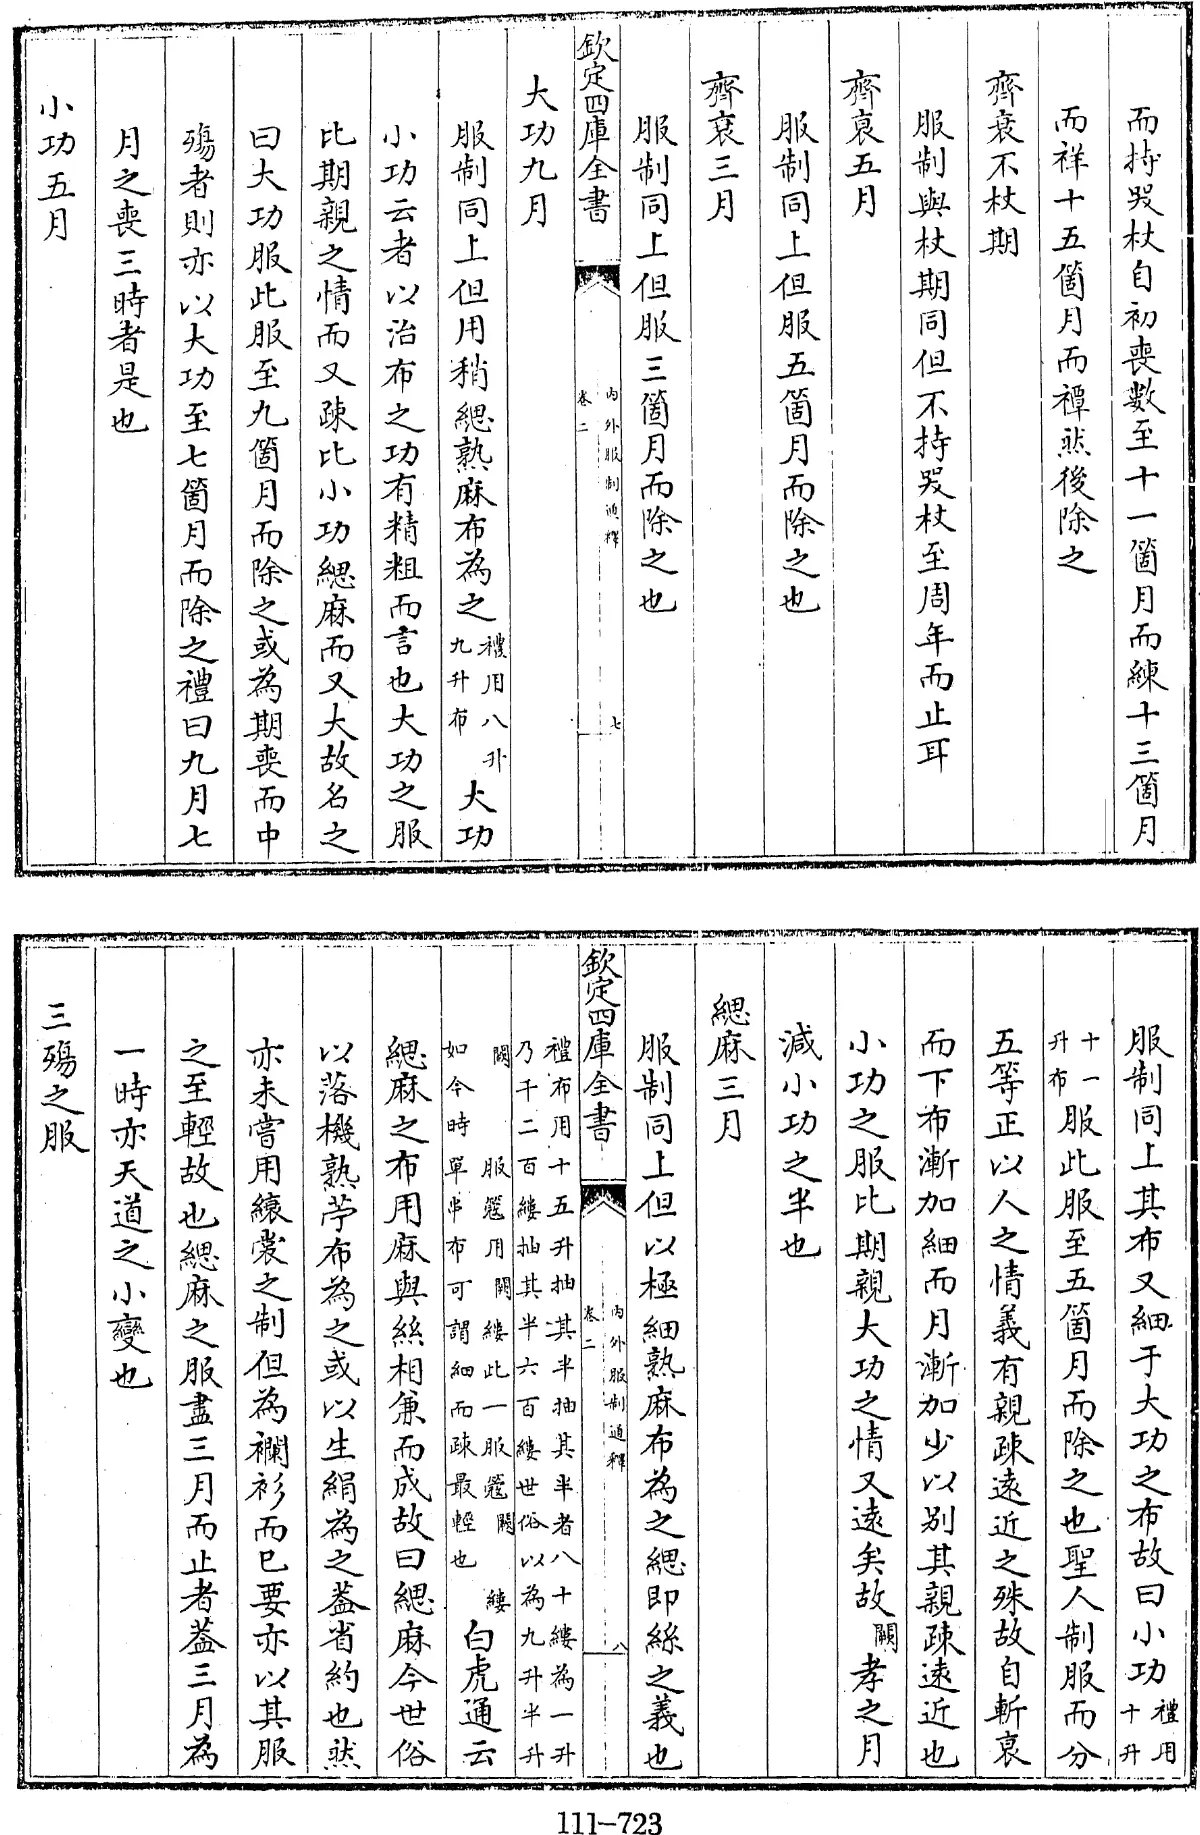 而持哭杖自初喪數至十一箇月而練十三箇月
而祥十五箇月而禫然後除之
齊衰不杖期
服制與杖期同但不持哭杖至周年而止耳
齊衰五月
服制同上但服五箇月而除之也
齊衰三月
服制同上但服三箇月而除之也
欽定四庫全書
內外服制通釋
卷二
七
大功九月
服制同上但用稍緦熟麻布為之禮用八升九升布大功
小功云者以治布之功有精粗而言也大功之服
比期親之情而又疎比小功緦麻而又大故名之
曰大功服此服至九箇月而除之或為期喪而中
殤者則亦以大功至七箇月而除之禮曰九月七
月之喪三時者是也
小功五月
服制同上其布又細于大功之布故曰小功禮用十升
十一升布服此服至五箇月而除之也聖人制服而分
五等正以人之情義有親疎遠近之殊故自斬衰
而下布漸加細而月漸加少以別其親疎遠近也
小功之服比期親大功之情又遠矣故闕孝之月
減小功之半也
緦麻三月
服制同上但以極細熟麻布為之緦即絲之義也
欽定四庫全書
內外服制通釋
卷二
八
禮布用十五升抽其半抽其半者八十縷為一升
乃千二百縷抽其半六百縷世俗以為九升半升
闕服䈉用闕縷此一服䈉闕縷
如今時單串布可謂細而疎最輕也
白虎通云
緦麻之布用麻與絲相兼而成故曰緦麻今世俗
以落機熟苧布為之或以生絹為之葢省約也然
亦未嘗用纕裳之制但為襴衫而已要亦以其服
之至輕故也緦麻之服盡三月而止者葢三月為
一時亦天道之小變也
三殤之服
111-723